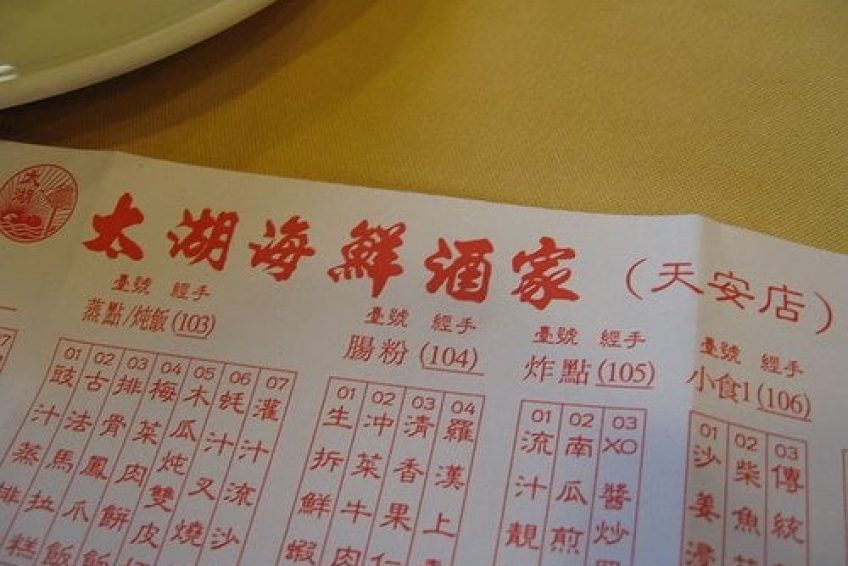 太湖
太湖海鮮酒家（天安店）
臺號 經手
蒸點/炖飯(103)
01
豉汁蒸排
02
古法馬拉糕
03
排骨鳳爪飯
04
梅菜肉餅飯
05
木瓜炖雙皮
06
蚝汁叉燒
07
灌汁流沙
臺號 經手
腸粉(104)
01
生拆鮮蝦
02
沖菜牛肉
03
清香果仁
04
羅漢上
臺號 經手
炸點(105)
01
流汁靚
02
南瓜煎
03
XO醬炒
臺號 經手
小食1(106)
01
沙姜浸
02
柴魚花
03
傳統